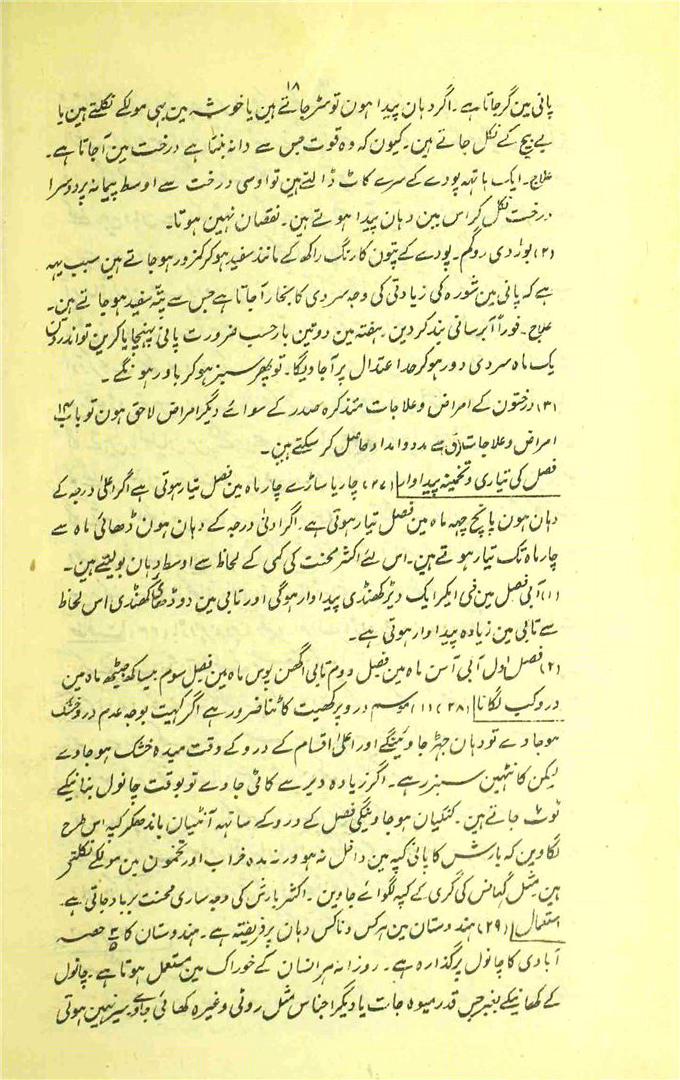 ۱۸
پانی مین گر جاتا ہے۔ اگر دہان پیدا ہون تو سڑ جاتے ہین یا خوشہ مین ہی مولکے نکلتے ہین یا
بے بیج کے نکل جاتے ہین۔ کیون کہ وہ قوت جس سے دانہ بنتا ہے درخت مین آجاتا ہے۔
علاج۔ ایک ہاتہہ پودے کے سرے کاٹ ڈالتے ہین تو اوسی درخت سے اوسط پیمانہ پر دوسرا
درخت نکل کر اس مین دہان پیدا ہوتے ہین۔ نقصان نہین ہوتا۔
(۲) بوردی روگم۔ پودے کے پتون کا رنگ راکھ کے مانند سفید ہو کر کمزور ہو جاتے ہین سبب یہہ
ہے کہ پانی مین شورہ کی زیادتی کی وجہ سردی کا بخار آجاتا ہے جس سے پتہ سفید ہو جاتے ہین۔
علاج۔ فوراً آبرسانی بند کر دین۔ ہفتہ مین دو تین بار حسب ضرورت پانی پہنچایا کرین تو اندرون
یک ماہ سردی دور ہو کر حد اعتدال پر آجاویگا۔ تو پھر سبز ہو کر باور ہونگے۔
(۳) درختون کے امراض و علاجات متذکرہ صدر کے سوائے دیگر امراض لاحق ہون تو باب ۱۴
امراض و علاجات (ق) سے مدد و امداد حاصل کر سکتے ہین۔
فصل کی تیاری و تخمینہ پیداوار (۲۷) چار یا ساڑے چار ماہ مین فصل تیار ہوتی ہے اگر اعلیٰ درجہ کے
دہان ہون پانچ چہہ ماہ مین فصل تیار ہوتی ہے۔ اگر ادنیٰ درجہ کے دہان ہون ڈھائی ماہ سے
چار ماہ تک تیار ہوتے ہین۔ اس لئے اکثر محنت کی کمی کے لحاظ سے اوسط دہان بولتے ہین۔
(۱) آبی فصل مین فی ایکر ایک ڈیڑ کھنڈی پیداوار ہوگی اور تابی مین دو ڈھائی کھنڈی اس لحاظ
سے تابی مین زیادہ پیداوار ہوتی ہے۔
(۲) فصل اول آبی آس ماہ مین فصل دوم تابی اگھن پوس ماہ مین فصل سوم بیساکھ جیٹھ ماہ مین
درو کب لگانا (۲۸) (۱) موسم درو پر کھیت کاٹنا ضرور ہے اگر کہیت بوجہ عدم درو خشک
ہو جاوے تو دہان جہڑ جاوینگے اور اعلیٰ اقسام کے درو کے وقت میدہ خشک ہو جاوے
لیکن کانٹہین سبز رہے۔ اگر زیادہ دیر سے کاٹی جاوے تو بوقت چانول بنانیکے
ٹوٹ جاتے ہین۔ کنکیان ہو جاوینگی فصل کے درو کے ساتہہ آنٹیان باندھکر کپہ اس طرح
لگاوین کہ بارش کا پانی کپہ مین داخل نہ ہو ورنہ مدہ خراب اور تخمون مین مولکے نکلتے
ہین مثل گہانس کی گری کے کپہ لگوائے جاوین۔ اکثر بارش کی وجہ ساری محنت برباد جاتی ہے۔
استعمال (۲۹) ہندوستان مین ہرکس و ناکس دہان پر فریفتہ ہے۔ ہندوستان کا ۳/۵ حصہ
آبادی کا چانول پر گذارہ ہے۔ روزانہ ہر انسان کے خوراک مین مستعمل ہوتا ہے۔ چانول
کے کھانیکے بغیر جس قدر میوہ جات یا دیگر اجناس مثل روٹی وغیرہ کھائی جاوے سیر نہین ہوتی